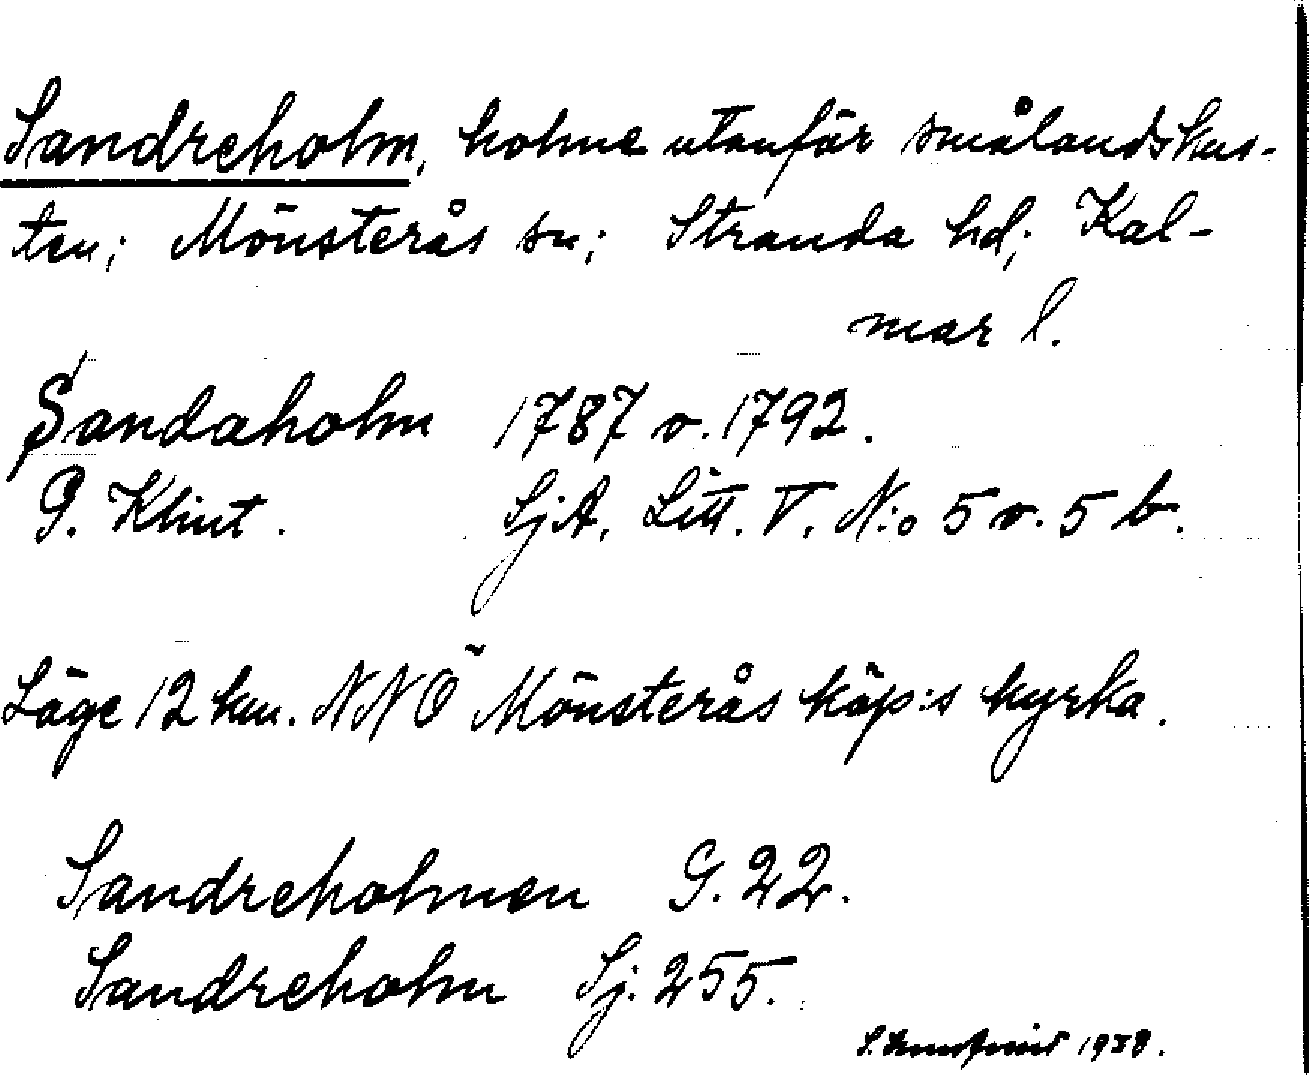 Sandreholm, holme utanför smålandskus-
ten; Mönsterås sn; Stranda hd; Kal-
mar l.
Sandaholm 1787 o. 1792.
G. Klint. SjA, Litt. V. N:o 5 o. 5 b.
Läge 12 km. NNÖ Mönsterås köp:s kyrka.
Sandreholmen G. 22.
Sandreholm Sj. 255.
1938.